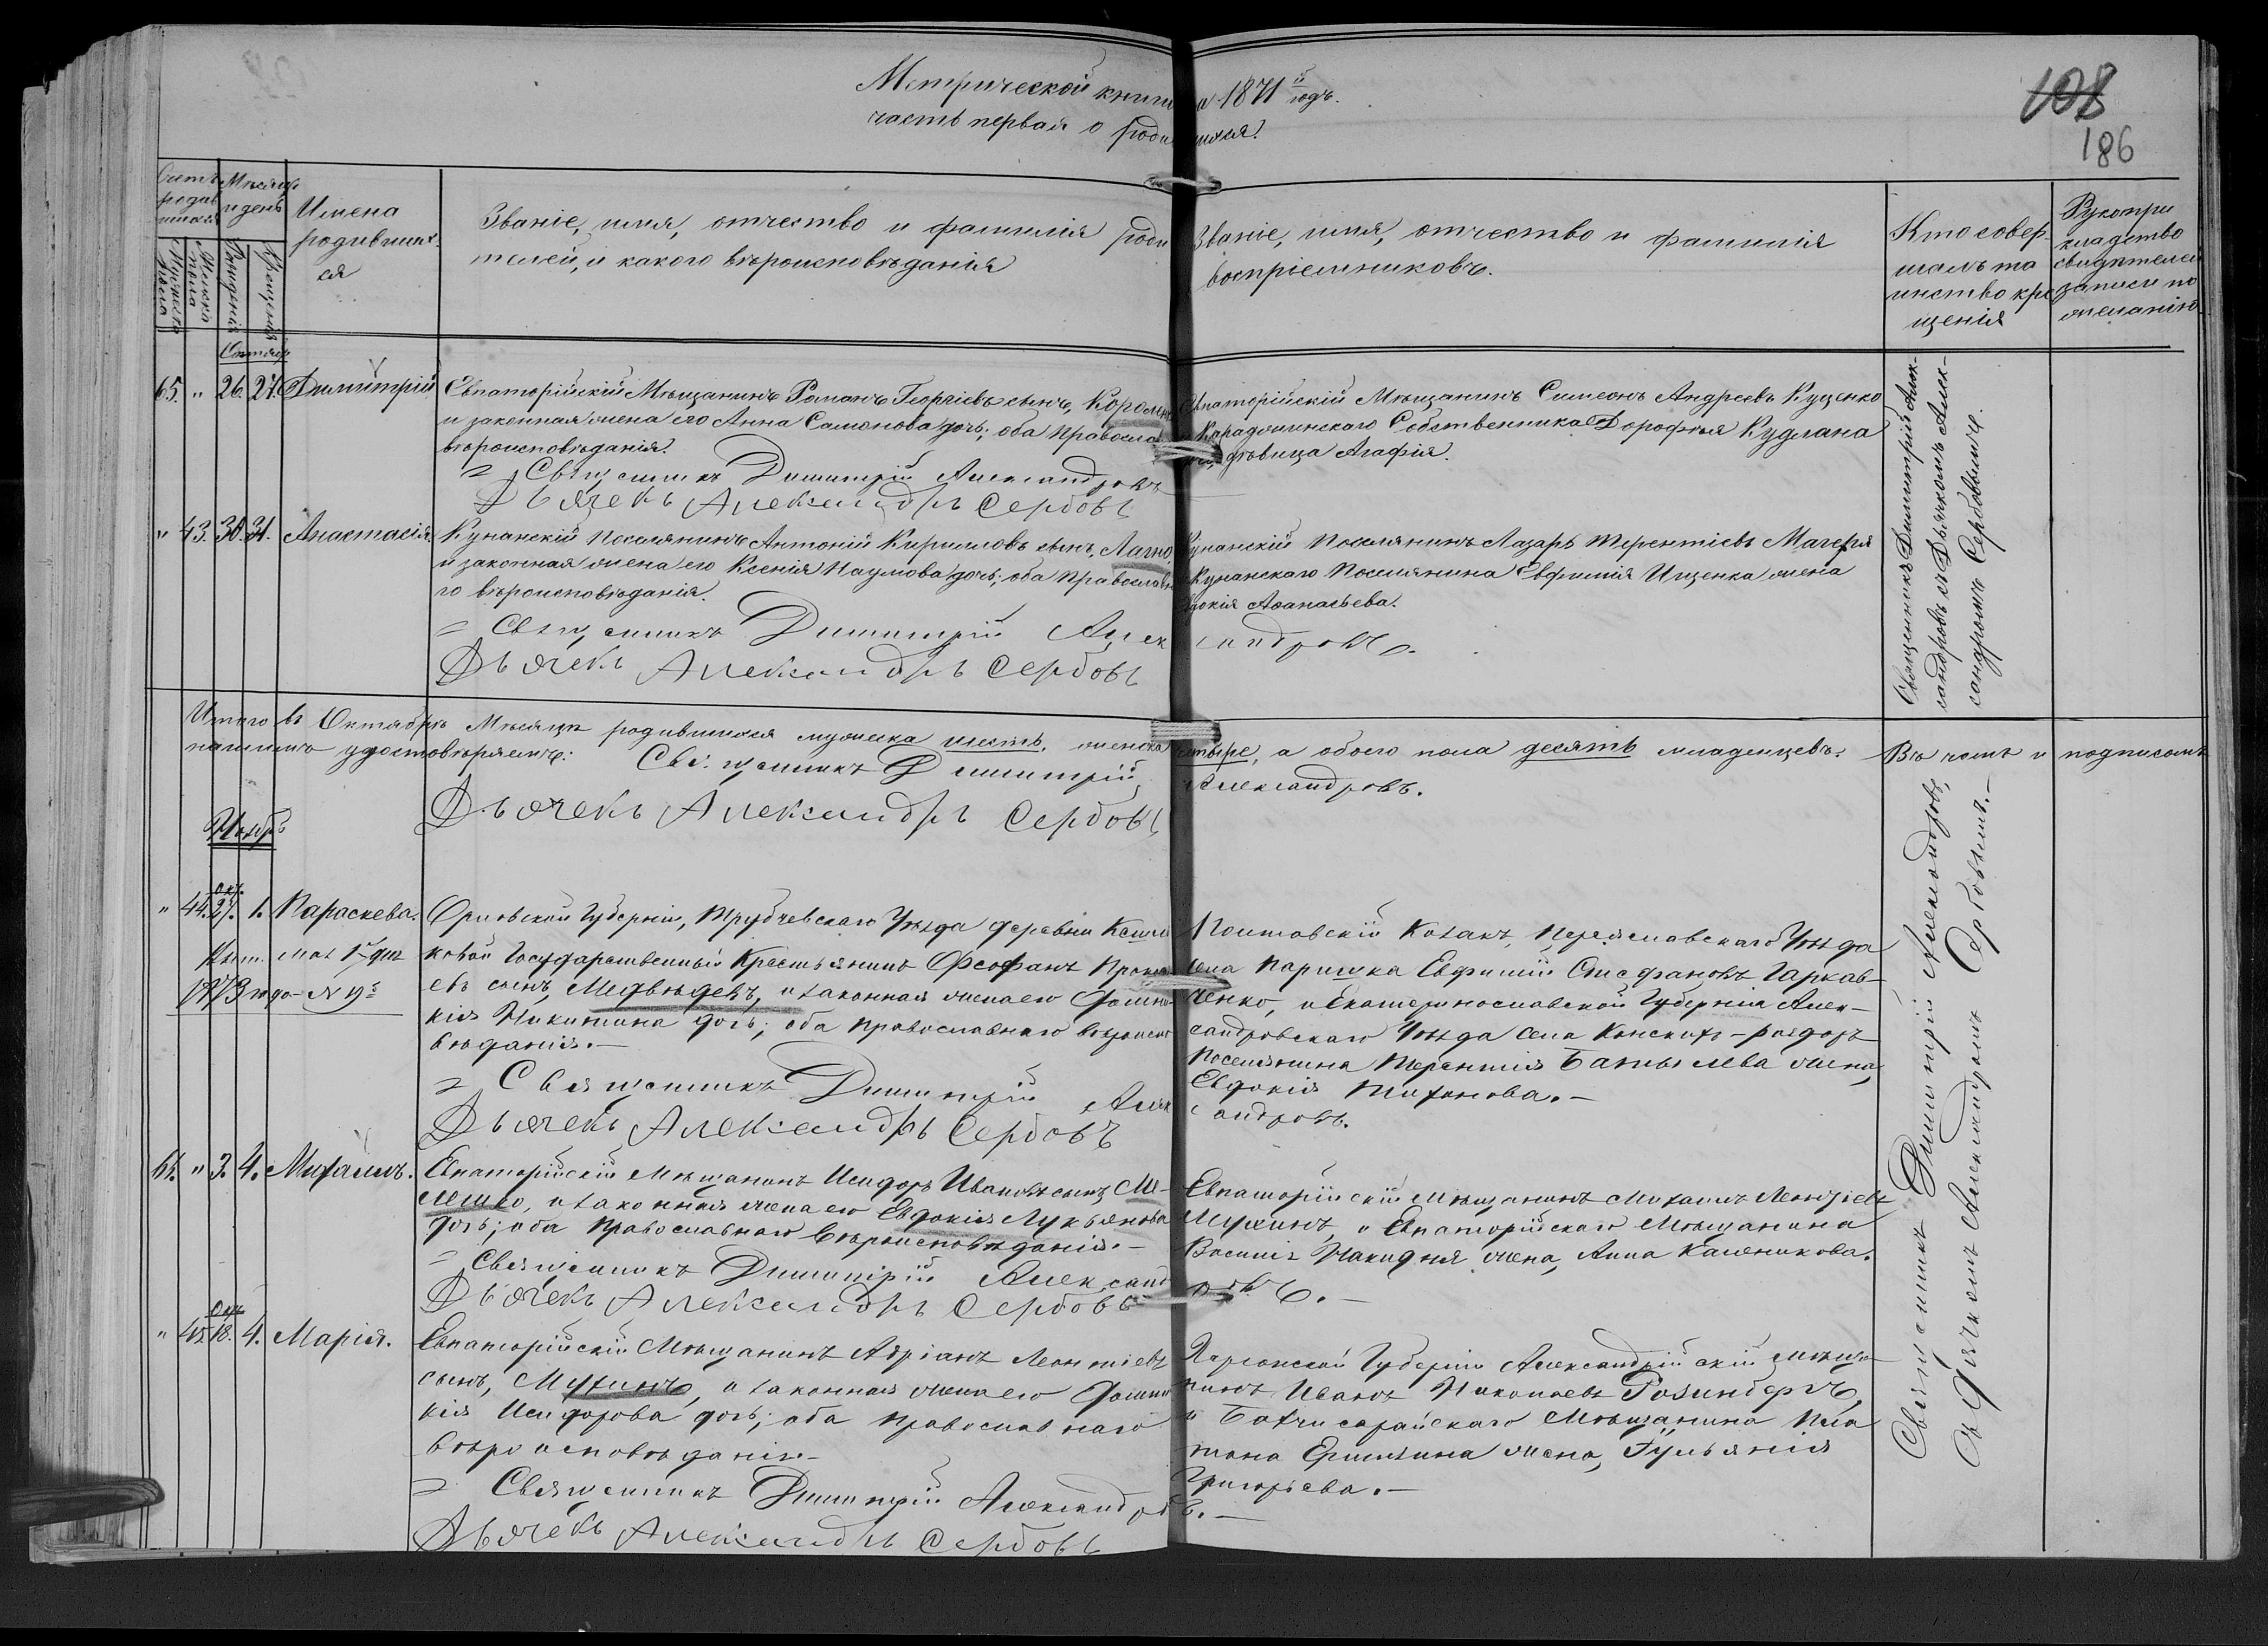 Метрической книги на 1871й годъ.
часть первая о родившихся.
108
186
Счетъ родившихся
Мужеска пола
Женска пола
Мѣсяцъ и день
Рожденія
Крещенія
Имена
родивших
ся
Званіе, имя, отчество и фамилія роди
телей, и какого вѣроисповѣданія
Званіе, имя, отчество и фамилія
воспріемниковъ.
Кто совер-
шалъ та
инство кре
щенія
Рукопри
кладство
свидѣтелей
записи по
желанію
Октябрь
65. " 26. 27. Димитрій
Евпаторійскій Мѣщанинъ Романъ Георгіевъ сынъ,
и законная жена его Анна Самонова дочь; оба Православ
вѣроисповѣданія.
= Священникъ Димитрій Александровъ
Дьячекъ Александръ Сербовъ
Евпаторійскій Мѣщанинъ Симеонъ Андреевъ Куценко
Собственника Дорофея Кудлана
дѣвица Агафія.
" 43. 30. 31. Анастасія.
Кунанскій Поселянинъ Антоній Кирилловъ сынъ, Лагно,
и законная жена его Ксенія Наумова дочь; оба Православна
го вѣроисповѣданія.
= Священникъ Димитрій Алек
сандровъ.
Дьячекъ Александръ Сербовъ
Кунанскій Поселянинъ Лазарь Терентіевъ
Кунанскаго Поселянина Евфимія Ищенка жена
Аѳанасьева.
Священникъ Димитрій Алек-
сандровъ съ Дьячкомъ Алек-
сандромъ Сербовымъ.
Итого въ Октябрѣ Мѣсяцѣ родившихся мужеска шесть, женска четыре, а обоего пола десять младенцевъ. Въ чемъ и подписомъ
нашимъ удостовѣряемъ: Священникъ Димитрій Александровъ.
Дьячекъ Александръ Сербовъ
Ноябрь
" 44. Окт. 27. 1. Параскева.
1873 года № 19
Орловской Губерніи, Трубчевскаго Уѣзда деревни
ковой Государственный Крестьянинъ Феофанъ
евъ сынъ, Медвѣдевъ, и законная жена его Домни-
кія Никитина дочь; оба православнаго вѣроиспо
вѣданія.-
= Священникъ Димитрій Алек
сандровъ.
Дьячекъ Александръ Сербовъ
Полтавскій Козакъ, Переяславскаго Уѣзда
села Паришка Евфимій Стефановъ Гаркав-
ченко, и Екатеринославской Губерніи Алек-
сандровскаго Уѣзда села Конскихъ-раздоръ
Поселянина Терентія жена,
Евдокія Тихонова.-
66. " 3. 4. Михаилъ.
Евпаторійскій Мѣщанинъ Исидоръ Ивановъ сынъ Ме-
лешко, и законная жена его Евдокія Лукьянова
дочь; оба Православнаго Вѣроисповѣданія.-
= Священникъ Димитрій Александ
ровъ.-
Дьячекъ Александръ Сербовъ
Евпаторійскій Мѣщанинъ Михаилъ Леонтіевъ
Мухинъ, и Евпаторійскаго Мѣщанина
Василія жена, Анна Каленикова.
" 45. Окт. 18. 4. Марія.
Евпаторійскій Мѣщанинъ Адріанъ Леонтіевъ
сынъ, Мухинъ, и законная жена его Домни
кія Исидорова дочь; оба православнаго
вѣроисповѣданія.-
= Священникъ Димитрій Александровъ.-
Дьячекъ Александръ Сербовъ
Херсонской Губерніи Александрійскій мѣща-
нинъ Иванъ Николаевъ Розинбергъ,
и Бахчисарайскаго Мѣщанина Пла
тона жена, Іульянія
Григорьева.-
Священникъ Димитрій Александровъ,
съ Дьячкомъ Александромъ Сербовымъ.-